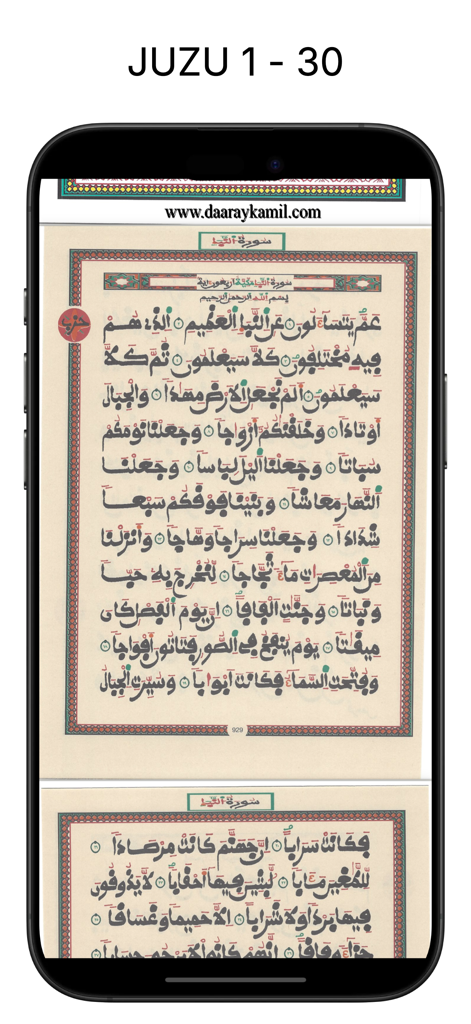 JUZU 1 - 30
www.daaraykamil.com
سورة النبإ
سورة النبإ مكية أربعون آية
بسم الله الرحمن الرحيم
حزب
عَمَّ يَتَسَآءَلُونَ عَنِ اِلنَّبَإِ اِلْعَظِيمِ اِلذِے هُمْ
فِيهِ مُخْتَلِفُونَ كَلَّا سَيَعْلَمُونَ ثُمَّ كَلَّا
سَيَعْلَمُونَ أَلَمْ نَجْعَلِ اِلْأَرْضَ مِهَٰدًا وَالْجِبَالَ
أَوْتَادًا وَخَلَقْنَٰكُمْ أَزْوَٰجًا وَجَعَلْنَا نَوْمَكُمْ
سُبَاتًا وَجَعَلْنَا اَليْلَ لِبَاسًا وَجَعَلْنَا
اَلنَّهَارَ مَعَاشًا وَبَنَيْنَا فَوْقَكُمْ سَبْعًا
شِدَادًا وَجَعَلْنَا سِرَاجًا وَهَّاجًا وَأَنزَلْنَا
مِنَ اَلْمُعْصِرَٰتِ مَآءً ثَجَّاجًا لِّنُخْرِجَ بِهِ حَبًّا
وَنَبَاتًا وَجَنَّٰتٍ أَلْفَافًا إِنَّ يَوْمَ اَلْفَصْلِ كَانَ
مِيقَٰتًا يَوْمَ يُنفَخُ فِے اِلصُّورِ فَتَأْتُونَ أَفْوَاجًا
وَفُتِّحَتِ اِلسَّمَآءُ فَكَانَتْ أَبْوَٰبًا وَسُيِّرَتِ اِلْجِبَالُ
929
سورة النبإ
فَكَانَتْ سَرَابًا إِنَّ جَهَنَّمَ كَانَتْ مِرْصَادًا
لِّلطَّٰغِينَ مَـَٔابًا لَّٰبِثِينَ فِيهَآ أَحْقَابًا لَّا يَذُوقُونَ
فِيهَا بَرْدًا وَلَا شَرَابًا إِلَّا حَمِيمًا وَغَسَاقًا
جَزَآءً وِفَاقًا إِنَّهُمْ كَانُوا۟ لَا يَرْجُونَ حِسَابًا